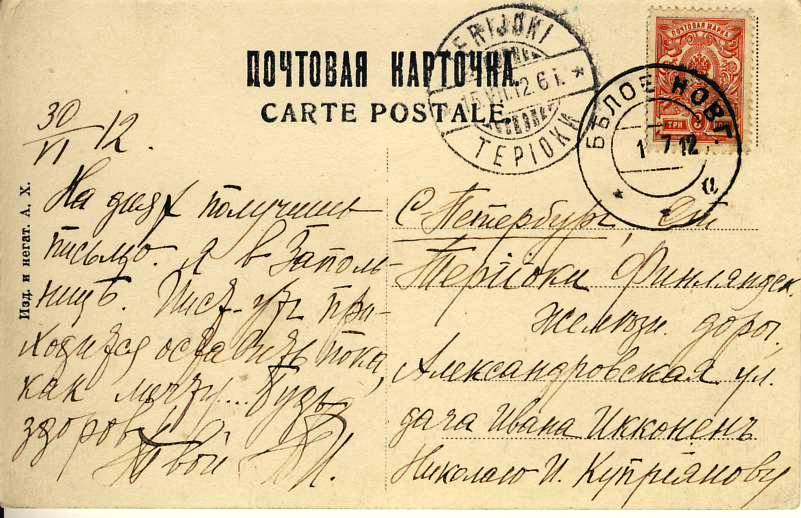 ПОЧТОВАЯ КАРТОЧКА.
CARTE POSTALE.
TERIJOKI
12 6 i.
ТЕРІОКИ
ПОЧТОВАЯ МАРКА
ТРИ 3
БѢЛОЕ НОВГ.
7 12
а
Изд. и негат. А. Х.
30
VI 12.
На днях получишь
письмо. я в Заполь-
ницъ. при-
ходится оставить пока,
как лечу... будь
здоров!
Твой
С Петербург, Ст
Теріоки Финляндск.
желѣзн. дорог,
Александровская ул.
дача Ивана Икконенъ
Николаю И. Купріянову